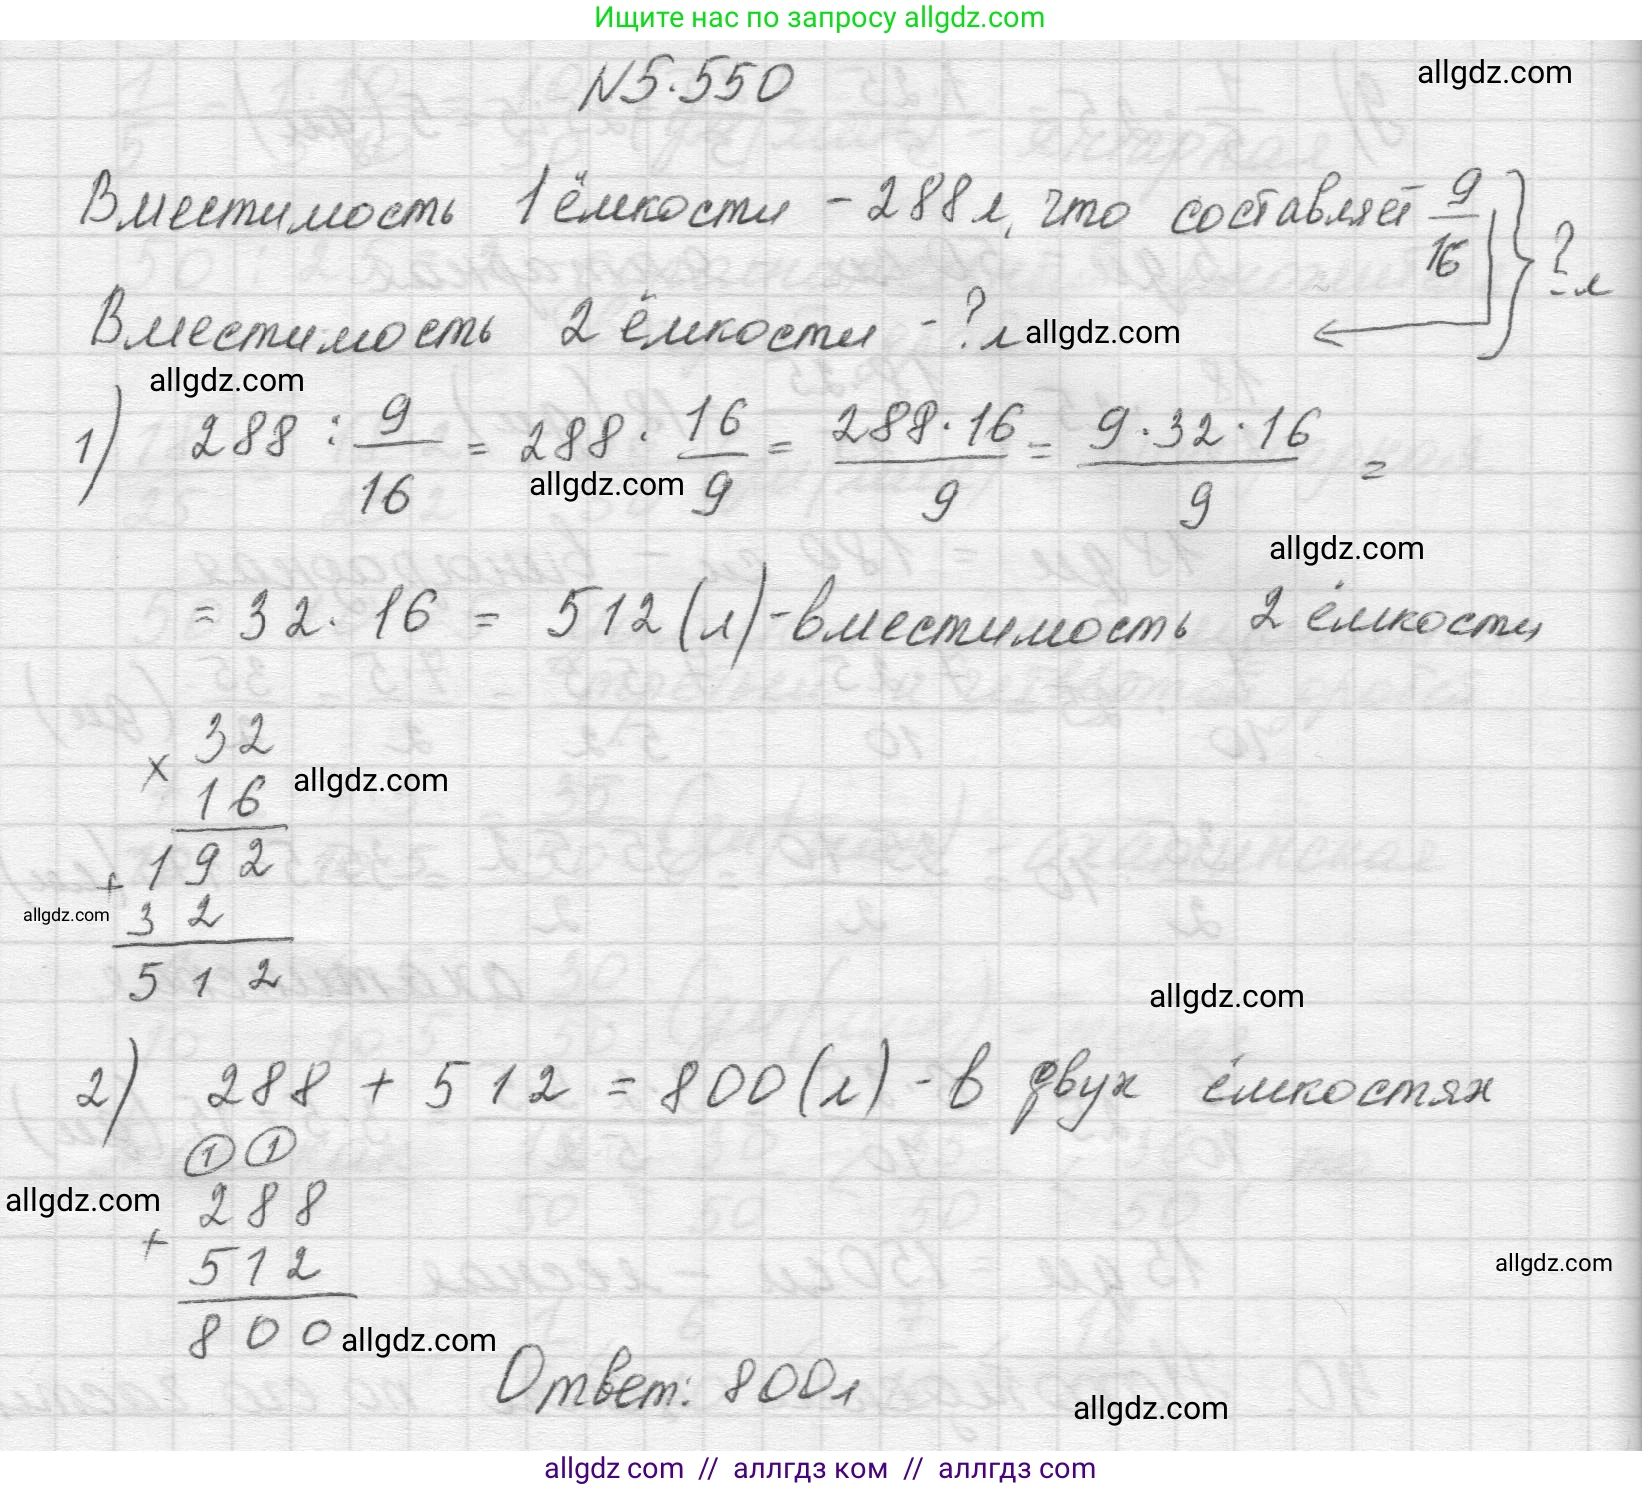 Ищите нас по запросу allgdz.com
N5.550
allgdz.com
Вместимость 1 ёмкости - 288 л, что составляет 9/16 } ? л
Вместимость 2 ёмкости - ? л
allgdz.com
allgdz.com
1) 288 : 9/16 = 288 · 16/9 = 288·16/9 = 9·32·16/9 =
allgdz.com
allgdz.com
= 32 · 16 = 512 (л) - вместимость 2 ёмкости
32
× 16
allgdz.com
192
+ 32
allgdz.com
512
allgdz.com
2) 288 + 512 = 800 (л) - в двух ёмкостях
1 1
288
allgdz.com
+ 512
allgdz.com
800
allgdz.com
Ответ: 800 л
allgdz.com
allgdz com // аллгдз ком // аллгдз com